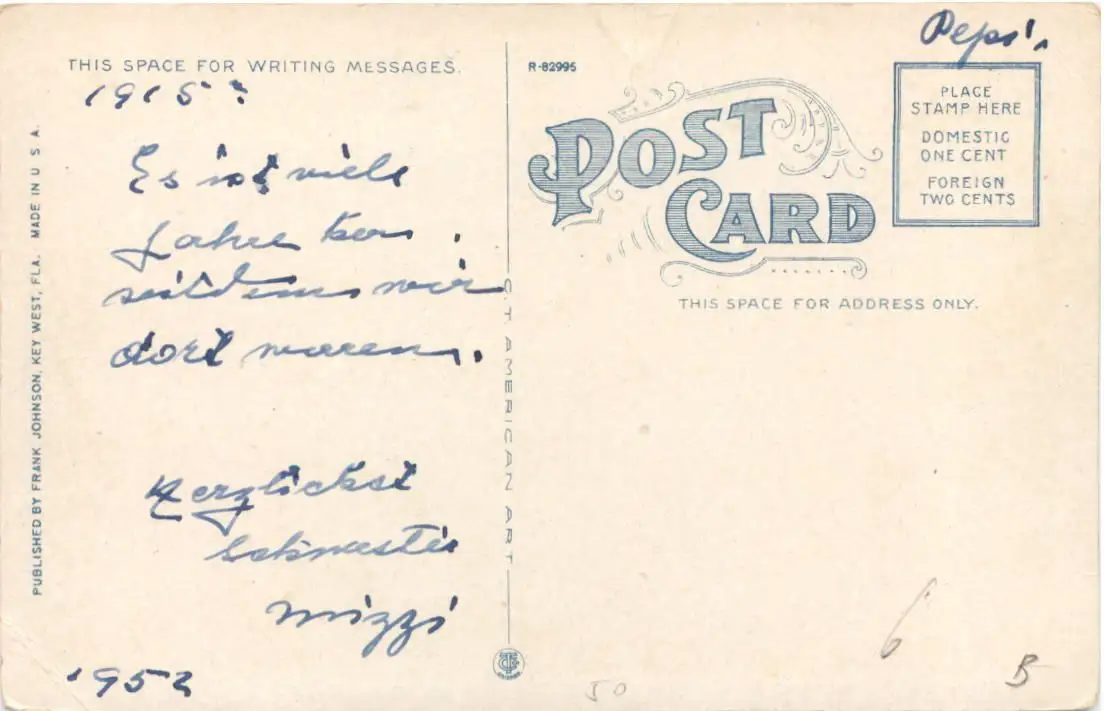 Pepi
THIS SPACE FOR WRITING MESSAGES.
1915?
Es ist viele
Jahre her.
seitdem wir
dort waren.
Herzlichst
Schwester
Mizzi
1952
PUBLISHED BY FRANK JOHNSON, KEY WEST, FLA. MADE IN U S A.
C. T. AMERICAN ART
R-82995
POST
CARD
THIS SPACE FOR ADDRESS ONLY.
PLACE
STAMP HERE
DOMESTIC
ONE CENT
FOREIGN
TWO CENTS
50
6
B